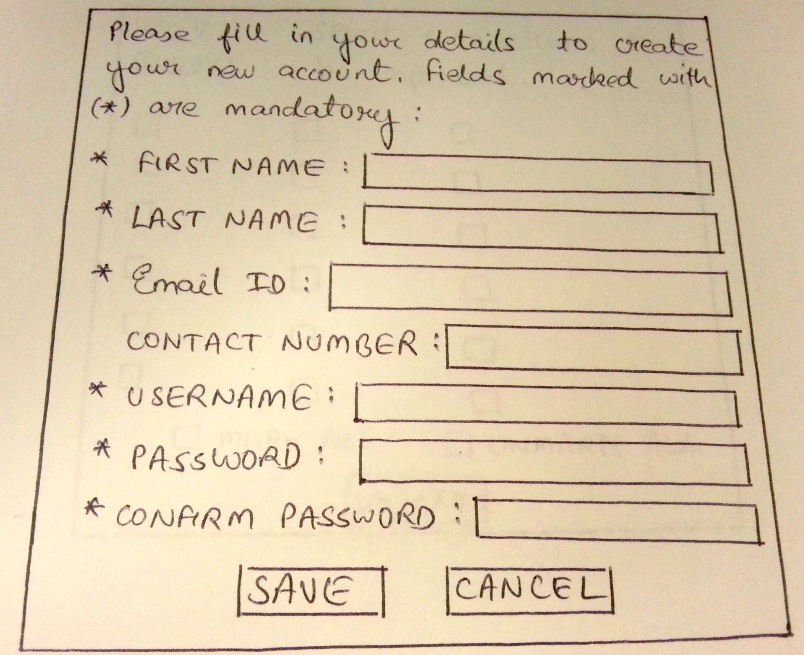 Please fill in your details to create
your new account. Fields marked with
(*) are mandatory :
* FIRST NAME :
* LAST NAME :
* Email ID :
CONTACT NUMBER :
* USERNAME :
* PASSWORD :
* CONFIRM PASSWORD :
SAVE CANCEL